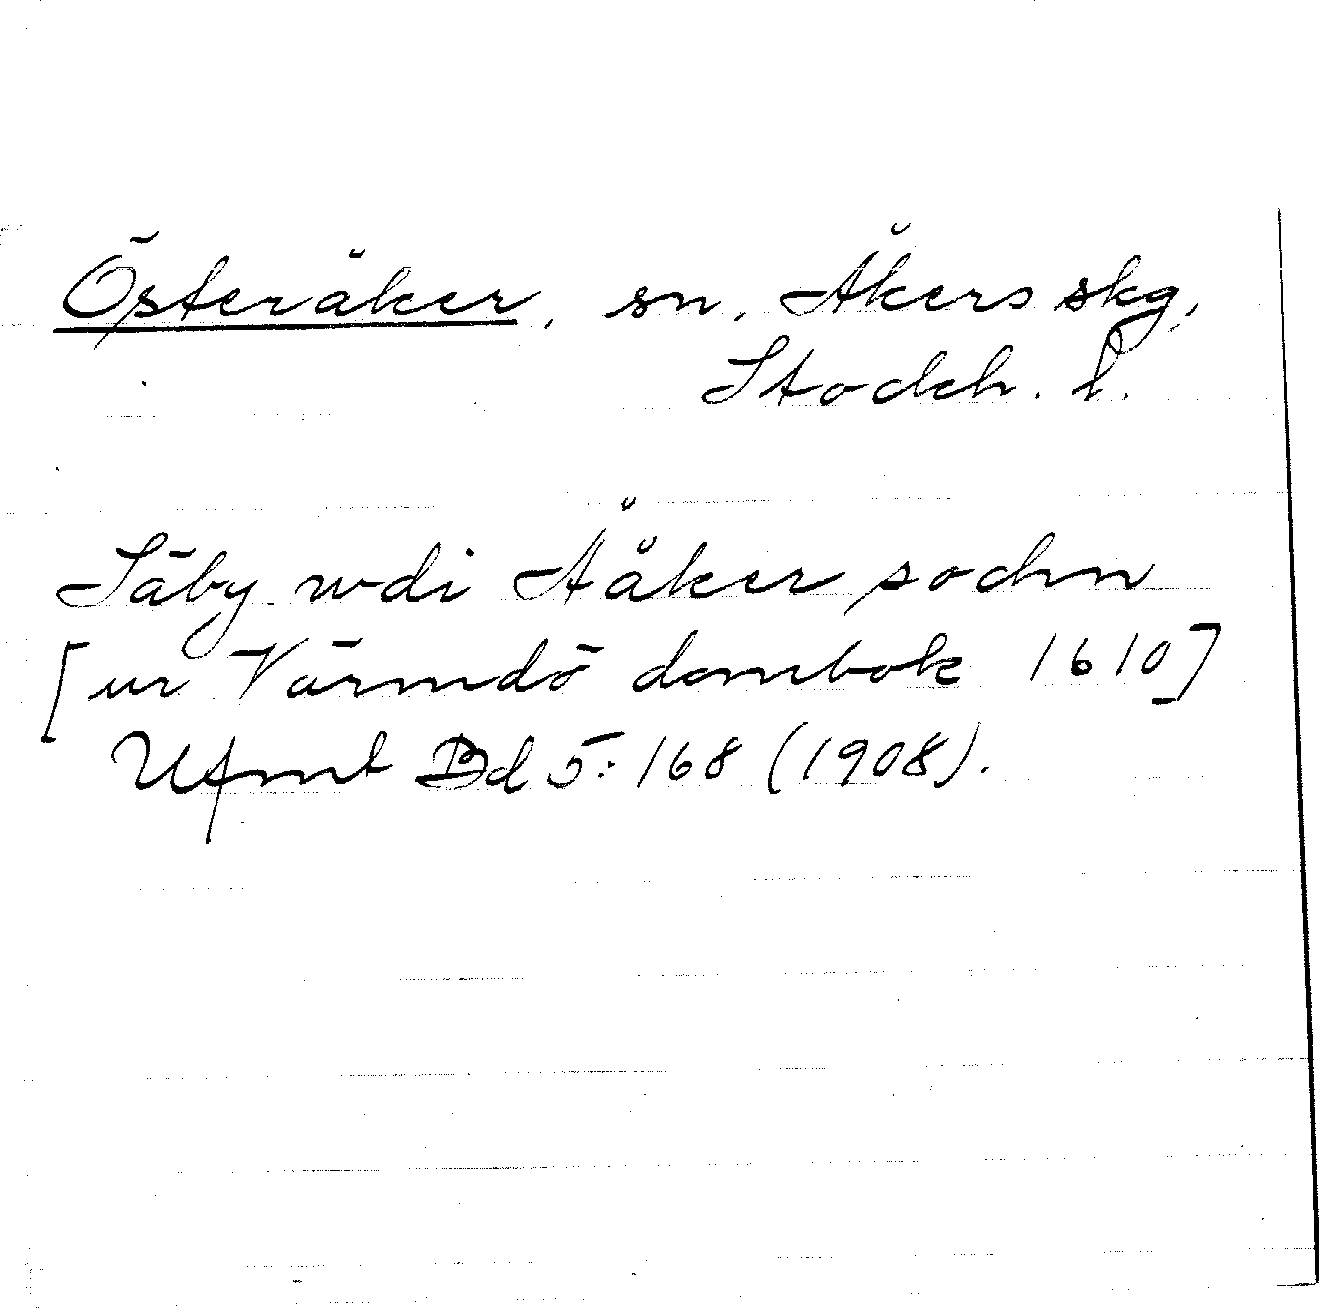 Österåker, sn, Åkers skg,
Stockh. l.
Säby wdi Ååker sochn
[ur Värmdö dombok 1610]
Ufmt Bd 5: 168 (1908).